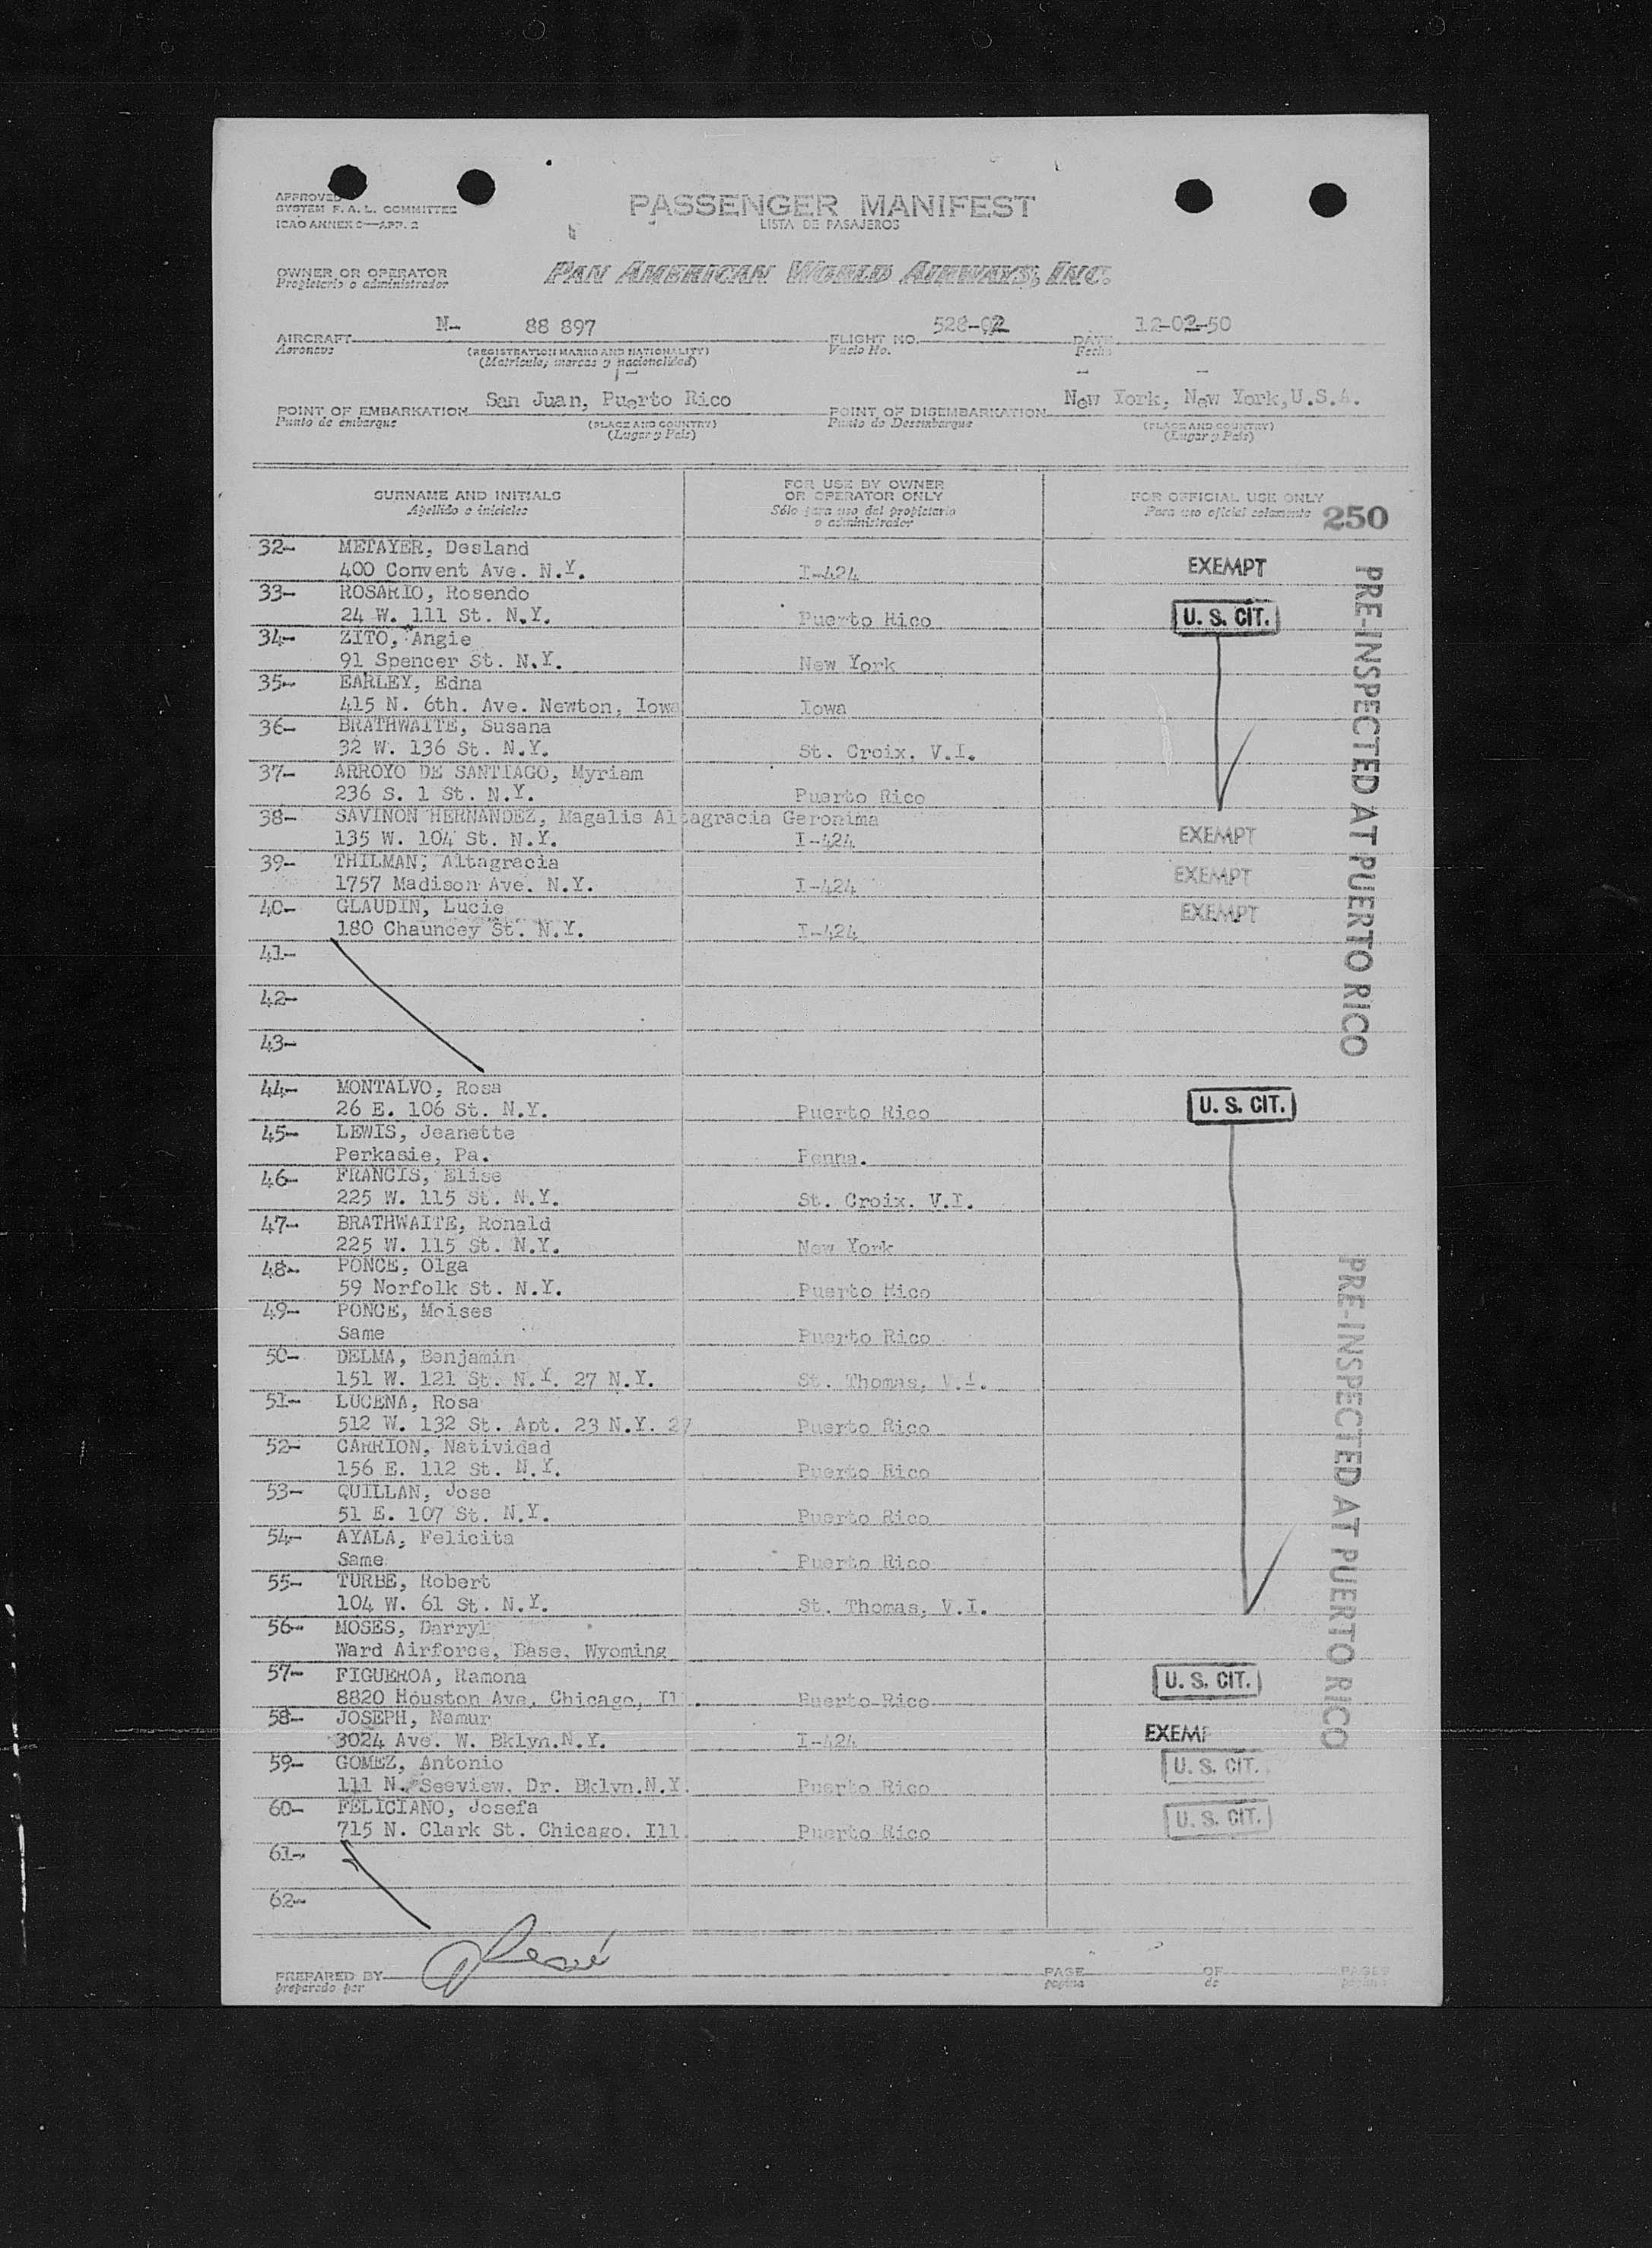 APPROVED
SYSTEM F. A. L. COMMITTEE
ICAO ANNEX 9—APP. 2
PASSENGER MANIFEST
LISTA DE PASAJEROS
OWNER OR OPERATOR
Propietario o administrador
PAN AMERICAN WORLD AIRWAYS, INC.
AIRCRAFT N- 88 897 FLIGHT NO. 528-02 DATE 12-02-50
Aeronave (REGISTRATION MARKS AND NATIONALITY) Vuelo No. Fecha
(Matrícula, marcas y nacionalidad)
POINT OF EMBARKATION San Juan, Puerto Rico POINT OF DISEMBARKATION New York, New York, U.S.A.
Punto de embarque (PLACE AND COUNTRY) Punto de Desembarque (PLACE AND COUNTRY)
(Lugar y País) (Lugar y País)
SURNAME AND INITIALS FOR USE BY OWNER OR OPERATOR ONLY FOR OFFICIAL USE ONLY
Apellido e iniciales Sólo para uso del propietario o administrador Para uso oficial solamente 250
32- METAYER, Desland
400 Convent Ave. N.Y. I-424 EXEMPT
33- ROSARIO, Rosendo
24 W. 111 St. N.Y. Puerto Rico U. S. CIT.
34- ZITO, Angie
91 Spencer St. N.Y. New York
35- EARLEY, Edna
415 N. 6th. Ave. Newton, Iowa Iowa
36- BRATHWAITE, Susana
32 W. 136 St. N.Y. St. Croix, V.I.
37- ARROYO DE SANTIAGO, Myriam
236 S. 1 St. N.Y. Puerto Rico
38- SAVINON HERNANDEZ, Magalis Altagracia Geronima
135 W. 104 St. N.Y. I-424 EXEMPT
39- THILMAN, Altagracia
1757 Madison Ave. N.Y. I-424 EXEMPT
40- GLAUDIN, Lucie
180 Chauncey St. N.Y. I-424 EXEMPT
41-
42-
43-
PRE-INSPECTED AT PUERTO RICO
44- MONTALVO, Rosa
26 E. 106 St. N.Y. Puerto Rico U. S. CIT.
45- LEWIS, Jeanette
Perkasie, Pa. Penna.
46- FRANCIS, Elise
225 W. 115 St. N.Y. St. Croix, V.I.
47- BRATHWAITE, Ronald
225 W. 115 St. N.Y. New York
48- PONCE, Olga
59 Norfolk St. N.Y. Puerto Rico
49- PONCE, Moises
Same Puerto Rico
50- DELMA, Benjamin
151 W. 121 St. N.Y. 27 N.Y. St. Thomas, V.I.
51- LUCENA, Rosa
512 W. 132 St. Apt. 23 N.Y. 27 Puerto Rico
52- CARRION, Natividad
156 E. 112 St. N.Y. Puerto Rico
53- QUILLAN, Jose
51 E. 107 St. N.Y. Puerto Rico
54- AYALA, Felicita
Same Puerto Rico
55- TURBE, Robert
104 W. 61 St. N.Y. St. Thomas, V.I.
56- MOSES, Darryl
Ward Airforce, Base, Wyoming
57- FIGUEROA, Ramona
8820 Houston Ave, Chicago, Il . Puerto Rico U. S. CIT.
58- JOSEPH, Namur
3024 Ave. W. Bklyn.N.Y. I-424 EXEMP
59- GOMEZ, Antonio
111 N. Seeview. Dr. Bklyn.N.Y. Puerto Rico U. S. CIT.
60- FELICIANO, Josefa
715 N. Clark St. Chicago. Ill. Puerto Rico U. S. CIT.
61-
62-
PRE-INSPECTED AT PUERTO RICO
PREPARED BY PAGE OF PAGES
preparado por pagina de paginas